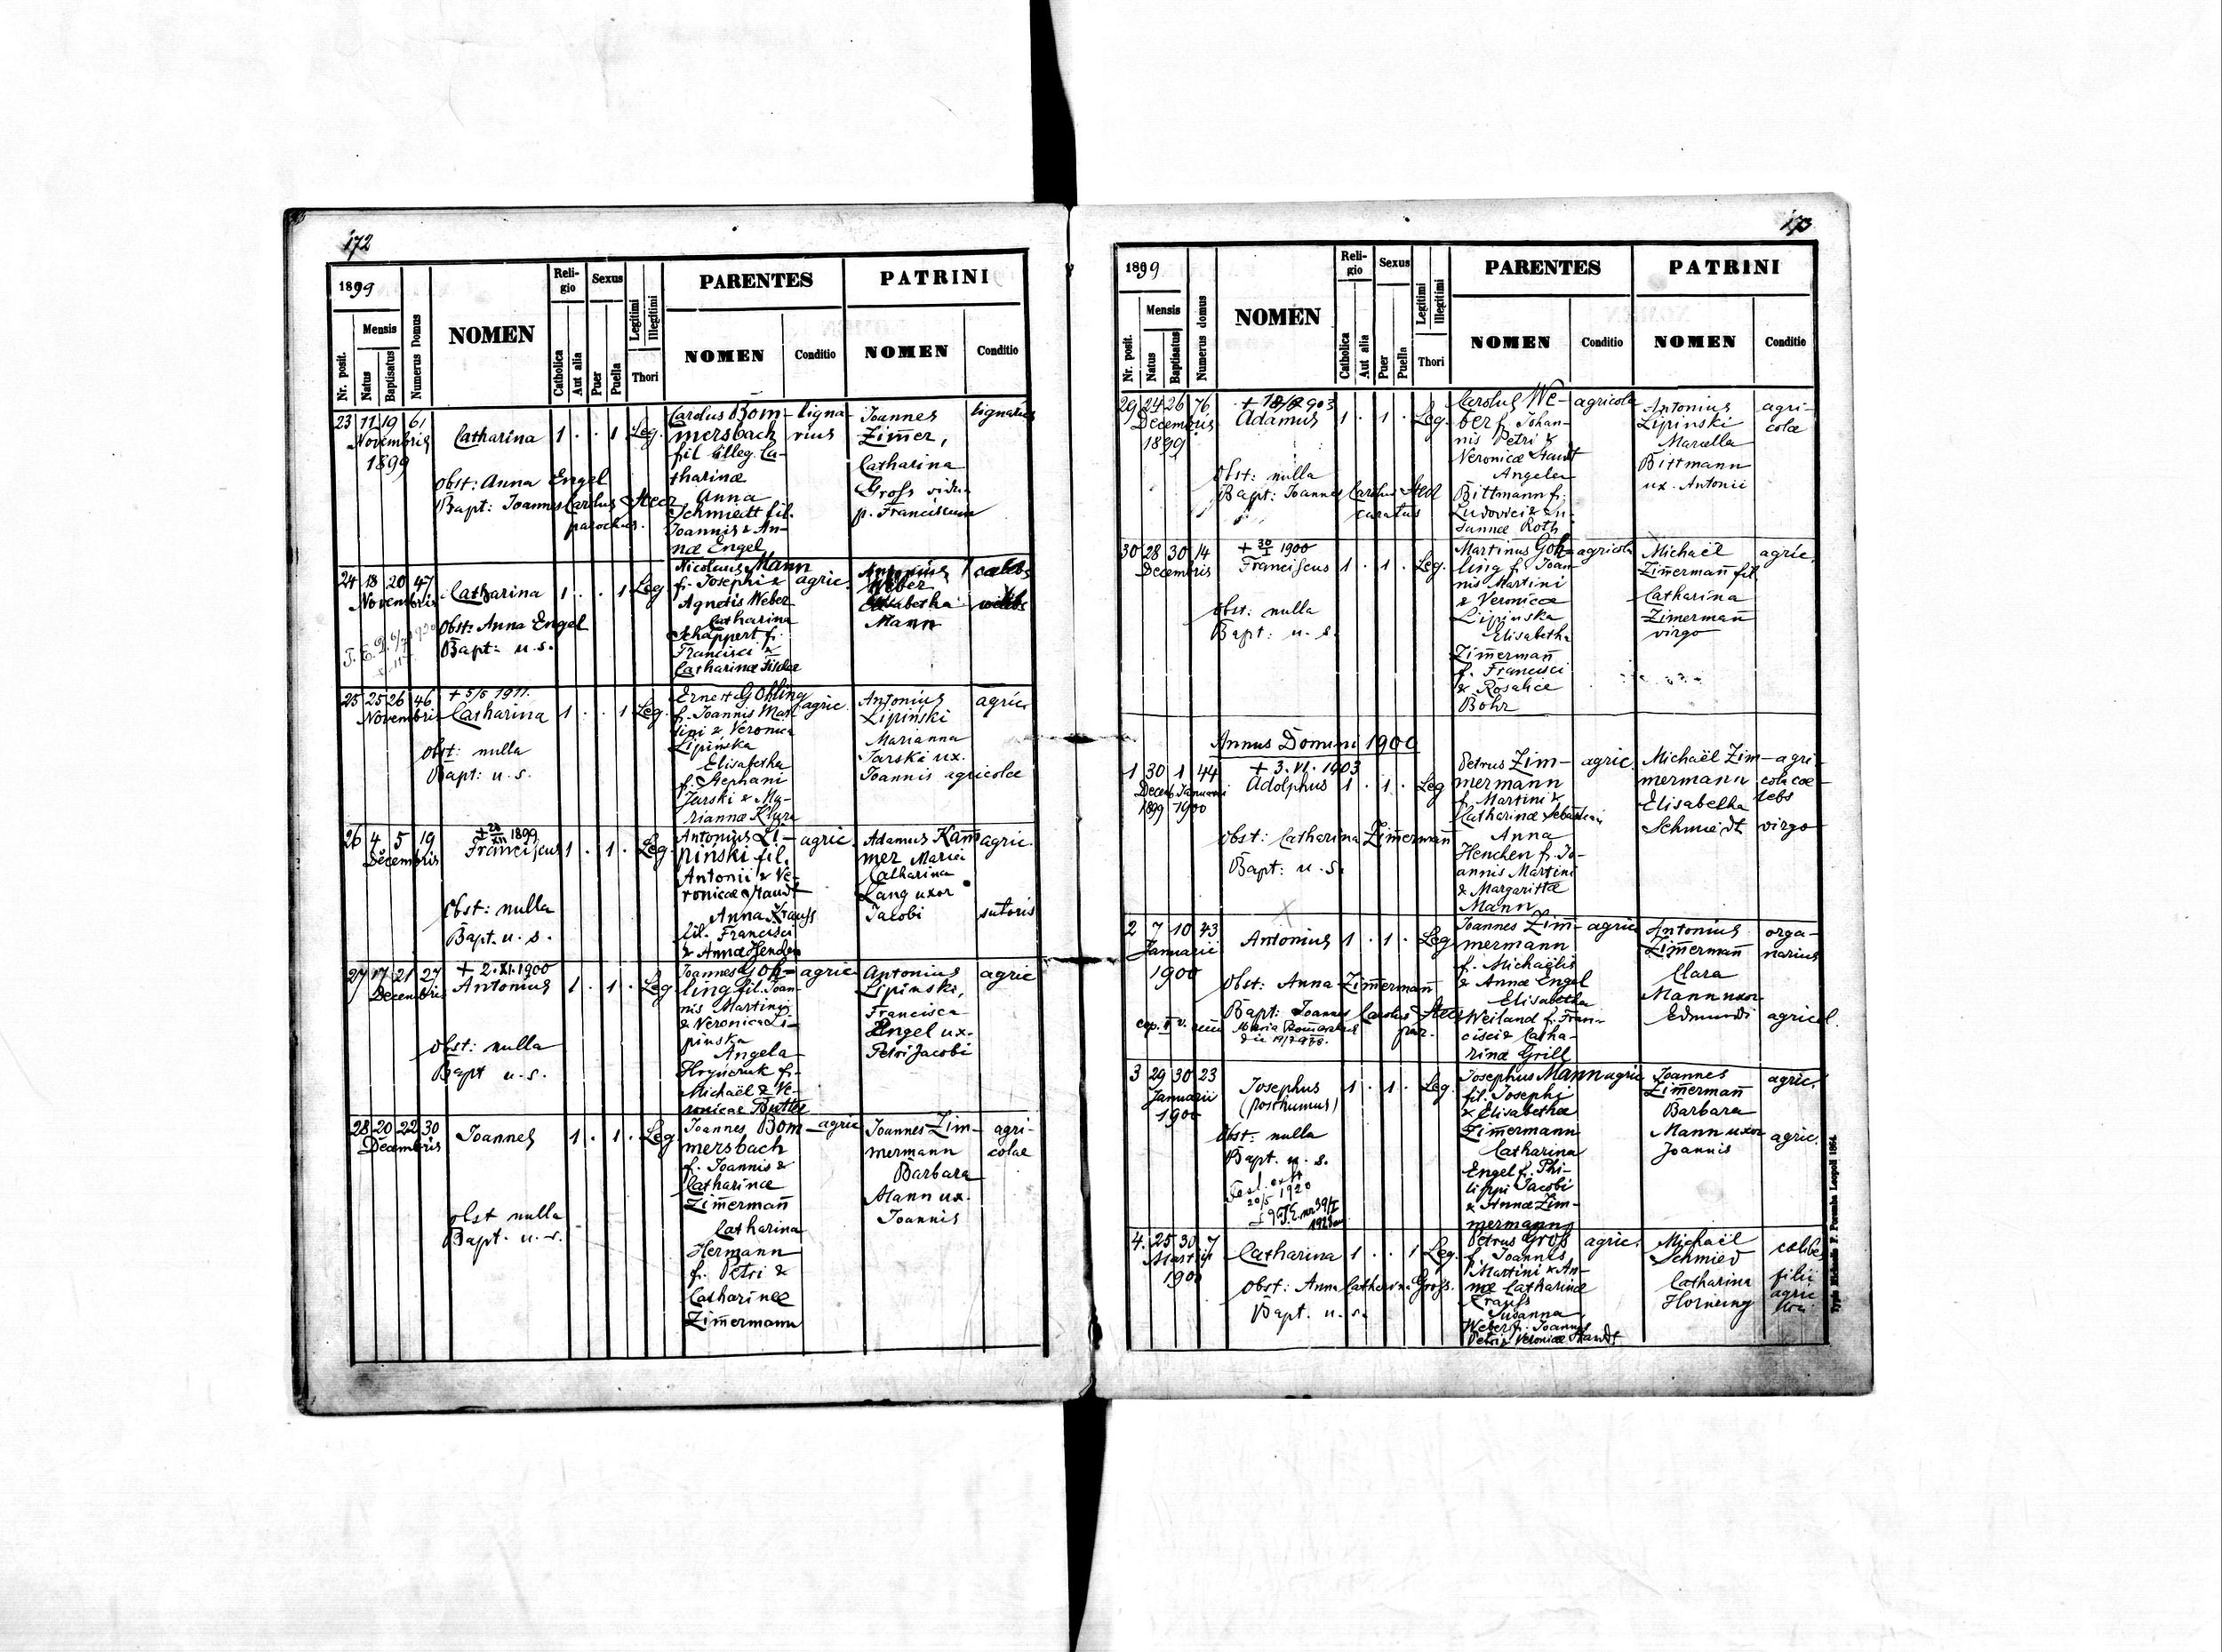 172
1899
Nr. posit.
Mensis
Natus
Baptisatus
Numerus Domus
NOMEN
Religio
Catholica
Aut alia
Sexus
Puer
Puella
Legitimi
Illegitimi
Thori
PARENTES
NOMEN
Conditio
PATRINI
NOMEN
Conditio
23 11 19 61
Novembris
1899
Catharina 1 . . 1 Leg.
Obst: Anna Engel
Bapt: Joannes Carolus
parochus.
Carolus Bom-
mersbach
fil illeg. Ca-
tharinæ
Anna
Schmiedt fil.
Joannis & An-
næ Engel
ligna-
rius
Joannes
Zimmer,
Catharina
Gross vidua
p. Franciscum
lignarius
24 18 20 47
Novembris
Catharina 1 . . 1 Leg
Obst: Anna Engel
Bapt: u. s.
Nicolaus Mann
f. Josephi &
Agnetis Weber
Catharina
Schappert f.
Francisci &
Catharinæ
agric.
Antonius
Weber
Elisabetha
Mann
cælebs
25 25 26 46
Novembris
+ 5/5 1911.
Catharina 1 . . 1 Leg.
Obst: nulla
Bapt: u. s.
Ernest Gohling
f. Joannis Mar-
tini & Veronica
Lipinska
Elisabetha
f. Stephani
Jarski & Ma-
riannæ
agric.
Antonius
Lipiński
Marianna
Jarski ux.
Joannis agricolæ
agric.
26 4 5 19
Decembris
1899
Franciscus 1 . 1 . Leg
Obst: nulla
Bapt. u. s.
Antonius Li-
pinski fil.
Antonii & Ve-
ronicæ Staudt
Anna Krauss
fil. Francisci
& Annæ
agric.
Adamus Kam̄-
mer
Catharina
Lang uxor
Jacobi
agric.
sutoris
27 17 21 27
Decembris
+ 2.XI.1900
Antonius 1 . 1 . Leg
Obst: nulla
Bapt u. s.
Joannes Goh-
ling fil. Joan-
nis Martini
& Veronica Li-
pinska
Angela
Hryńczuk f.
Michaël & Ve-
ronicæ Butter
agric
Antonius
Lipinski,
Francisca
Engel ux.
Petri Jacobi
agric
28 20 22 30
Decembris
Joannes 1 . 1 . Leg
obst nulla
Bapt. u. s.
Joannes Bom-
mersbach
f. Joannis &
Catharinæ
Zim̄ermañ
Catharina
Hermann
f. Petri &
Catharinæ
Zim̄ermann
agric
Joannes Zim-
mermann
Barbara
Mann ux.
Joannis
agri-
colae
173
1899
Nr. posit.
Mensis
Natus
Baptisatus
Numerus domus
NOMEN
Religio
Catholica
Aut alia
Sexus
Puer
Puella
Legitimi
Illegitimi
Thori
PARENTES
NOMEN
Conditio
PATRINI
NOMEN
Conditio
29 24 26 76
Decembris
1899
Adamus 1 . 1 . Leg
Obst: nulla
Bapt: Joannes Carolus
curatus
Carolus We-
ber f. Johan-
nis Petri &
Veronicæ Staudt
Angela
Bittmann f.
Ludovici & Su-
sannæ Roth
agricola
Antonius
Lipinski
Marcella
Bittmann
ux. Antonii
agri-
colæ
30 28 30 14
Decembris
+ 30/I 1900
Franciscus 1 . 1 . Leg.
Obst: nulla
Bapt: u. s.
Martinus Goh-
ling f. Joan-
nis Martini
& Veronicæ
Lipinska
Elisabetha
Zim̄ermañ
f. Francisci
& Rosaliæ
Böhr
agricola
Michaël
Zim̄ermañ fil.
Catharina
Zimermañ
virgo
agric.
Annus Domini 1900
1 30 1 44
Decemb. Januarii
1899 1900
+ 3.VI.1903
Adolphus 1 . 1 . Leg
Obst: Catharina Zim̄ermañ
Bapt: u. s.
Petrus Zim-
mermann
f. Martini &
Catharinæ
Anna
Henchen f. Jo-
annis Martini
& Margarittæ
Mann
agric.
Michaël Zim-
mermann
Elisabetha
Schmiedt
agri-
cola cæ-
lebs
virgo
2 7 10 43
Januarii
1900
Antonius 1 . 1 . Leg
Obst: Anna Zim̄ermañ
Bapt: Joannes Carolus
par.
Joannes Zim̄-
mermann
f. Michaëlis
& Annæ Engel
Elisabetha
Weiland f. Fran-
cisci & Catha-
rinæ Grill
agric
Antonius
Zim̄ermañ
Clara
Mann uxor
Edmundi
orga-
narius
agricol.
3 29 30 23
Januarii
1900
Josephus
(posthumus) 1 . 1 . Leg.
Obst: nulla
Bapt. u. s.
20/5 1920
Josephus Mann
fil. Josephi
& Elisabethæ
Zim̄ermann
Catharina
Engel f. Phi-
lippi Jacobi
& Annæ Zim-
mermann
agric
Joannes
Zim̄ermañ
Barbara
Mann uxor
Joannis
agric.
agric.
4. 25 30 7
Martii
1900
Catharina 1 . . 1 Leg.
Obst: Anna Catharina Gross.
Bapt. u. s.
Petrus Gross
f. Joannis
Martini & An-
næ Catharinæ
Krauss
Susanna
Weber f. Joannis
Petri & Veronicæ Staudt
agric.
Michaël
Schmied
Catharina
Hornung
cælibes
filii
agric
Typis Michaelis F. Poremba Leopoli 1864.